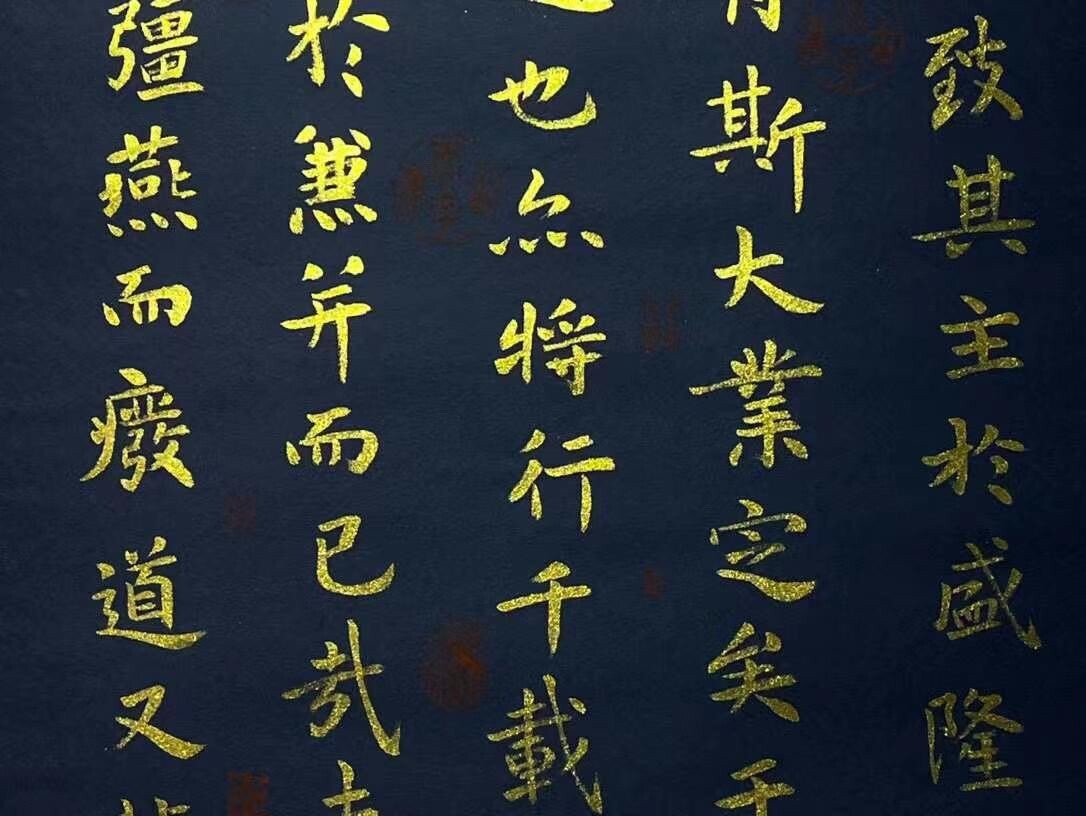 致其主於盛隆
斯大業定矣于
也亦將行千載
於兼并而已哉
彊燕而廢道又